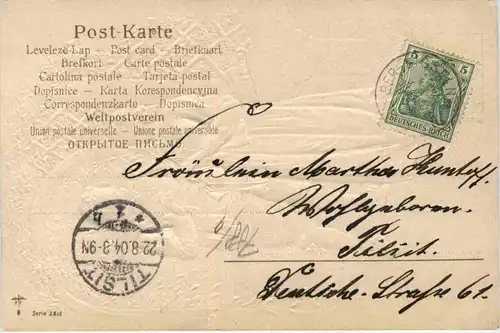 Post-Karte
Levelező-Lap — Post card — Briefkaart
Brefkort — Carte postale
Cartolina postale — Tarjeta postal
Dopisnice — Karta Korespondencyjna
Correspondenzkarte — Dopisnica
Weltpostverein
Union postale universelle — Unione postale universale
ОТКРЫТОЕ ПИСЬМО
5 5
DEUTSCHES REICH
Fräulein Martha
Wohlgeboren
Tilsit.
Deutsche-Straße 61.
TILSIT
22.8.04.8-9N
* 1 h
Serie 2812